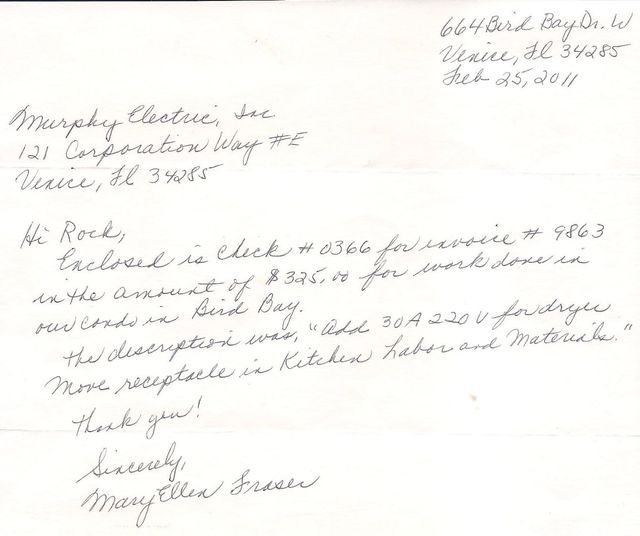 664 Bird Bay Dr. W
Venice, Fl 34285
Feb 25, 2011
Murphy Electric, Inc
121 Corporation Way #E
Venice, Fl 34285
Hi Rock,
Enclosed is check #0366 for invoice # 9863
in the amount of $325.00 for work done in
our condo in Bird Bay.
The description was, "Add 30A 220V for dryer
Move receptacle in Kitchen Labor and Materials."
Thank you!
Sincerely,
MaryEllen Fraser